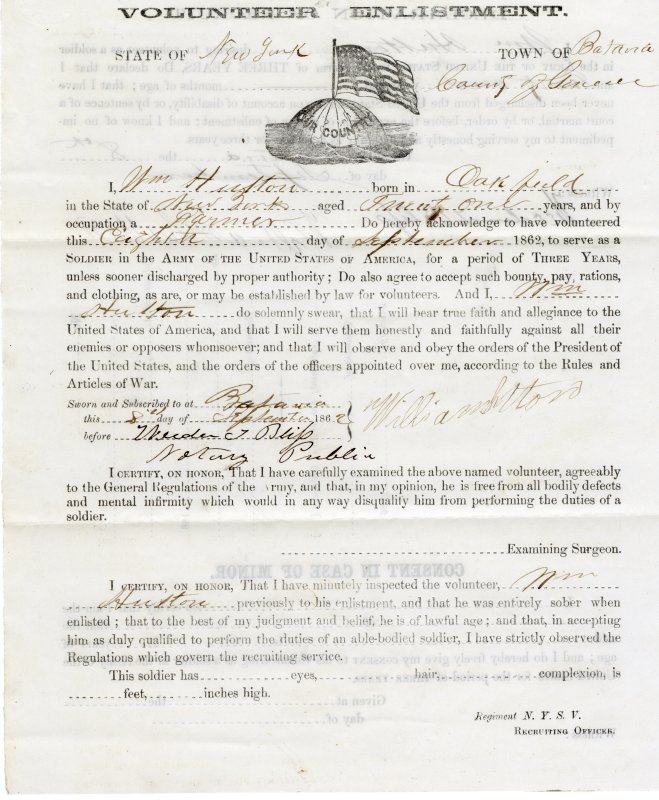 VOLUNTEER ENLISTMENT.
STATE OF New York TOWN OF Batavia
County of Genesee
OUR COUNTRY
I, Wm Hutton born in Oakfield
in the State of New York aged Twenty one years, and by
occupation a Farmer Do hereby acknowledge to have volunteered
this Eighth day of September 1862, to serve as a
SOLDIER IN THE ARMY OF THE UNITED STATES OF AMERICA, for a period of THREE YEARS,
unless sooner discharged by proper authority; Do also agree to accept such bounty, pay, rations,
and clothing, as are, or may be established by law for volunteers. And I, Wm
Hutton do solemnly swear, that I will bear true faith and allegiance to the
United States of America, and that I will serve them honestly and faithfully against all their
enemies or opposers whomsoever; and that I will observe and obey the orders of the President of
the United States, and the orders of the officers appointed over me, according to the Rules and
Articles of War.
Sworn and Subscribed to at Batavia
this 8th day of September 1862
before
William Hutton
Notary Public
I CERTIFY, ON HONOR, That I have carefully examined the above named volunteer, agreeably
to the General Regulations of the Army, and that, in my opinion, he is free from all bodily defects
and mental infirmity which would in any way disqualify him from performing the duties of a
soldier.
Examining Surgeon.
I CERTIFY, ON HONOR, That I have minutely inspected the volunteer, Wm
Hutton previously to his enlistment, and that he was entirely sober when
enlisted; that to the best of my judgment and belief, he is of lawful age; and that, in accepting
him as duly qualified to perform the duties of an able-bodied soldier, I have strictly observed the
Regulations which govern the recruiting service.
This soldier has eyes, hair, complexion, is
feet, inches high.
Regiment N. Y. S. V.
RECRUITING OFFICER.